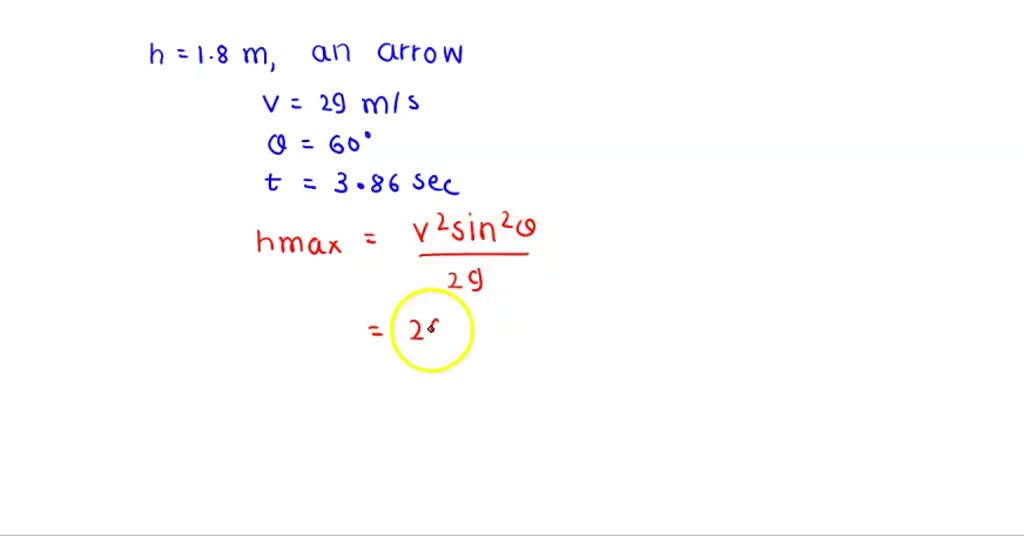 h = 1.8 m, an arrow
v = 29 m/s
θ = 60°
t = 3.86 sec
hmax = v²sin²θ / 2g
= 2